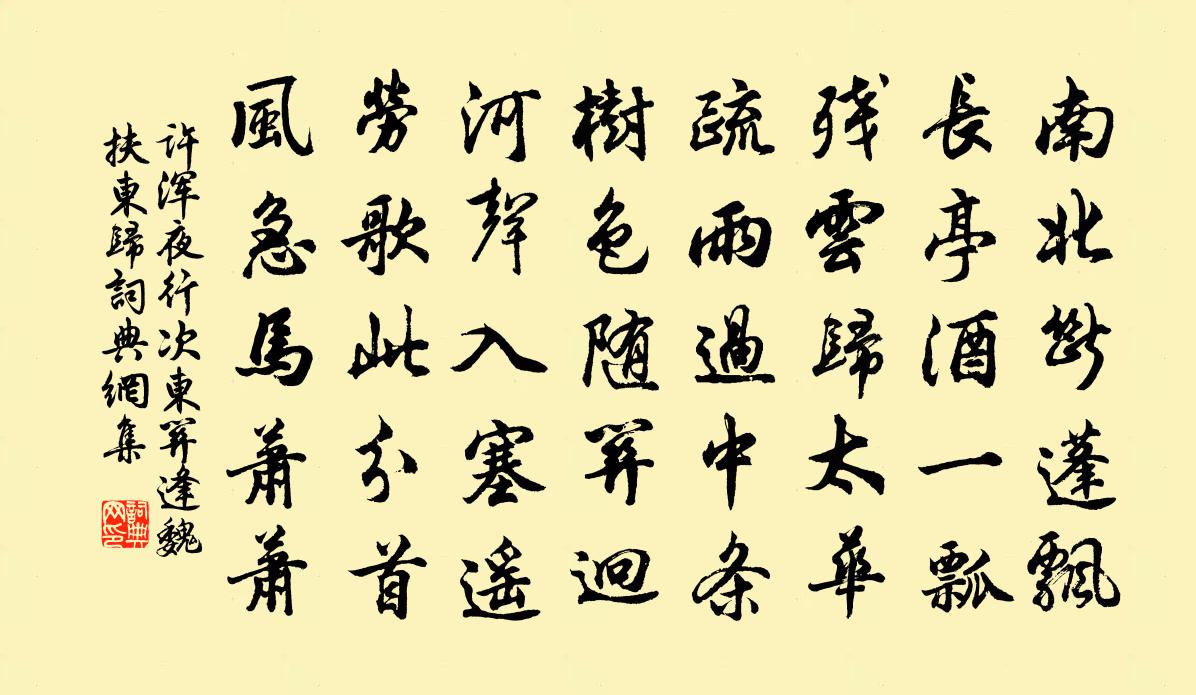 南北斷蓬飄
長亭酒一瓢
残雲歸太華
疏雨過中条
樹色随關迥
河聲入塞遥
勞歌此分首
風急馬蕭蕭
許渾夜行次東關逢魏
扶東歸詞典網集
詞典网印